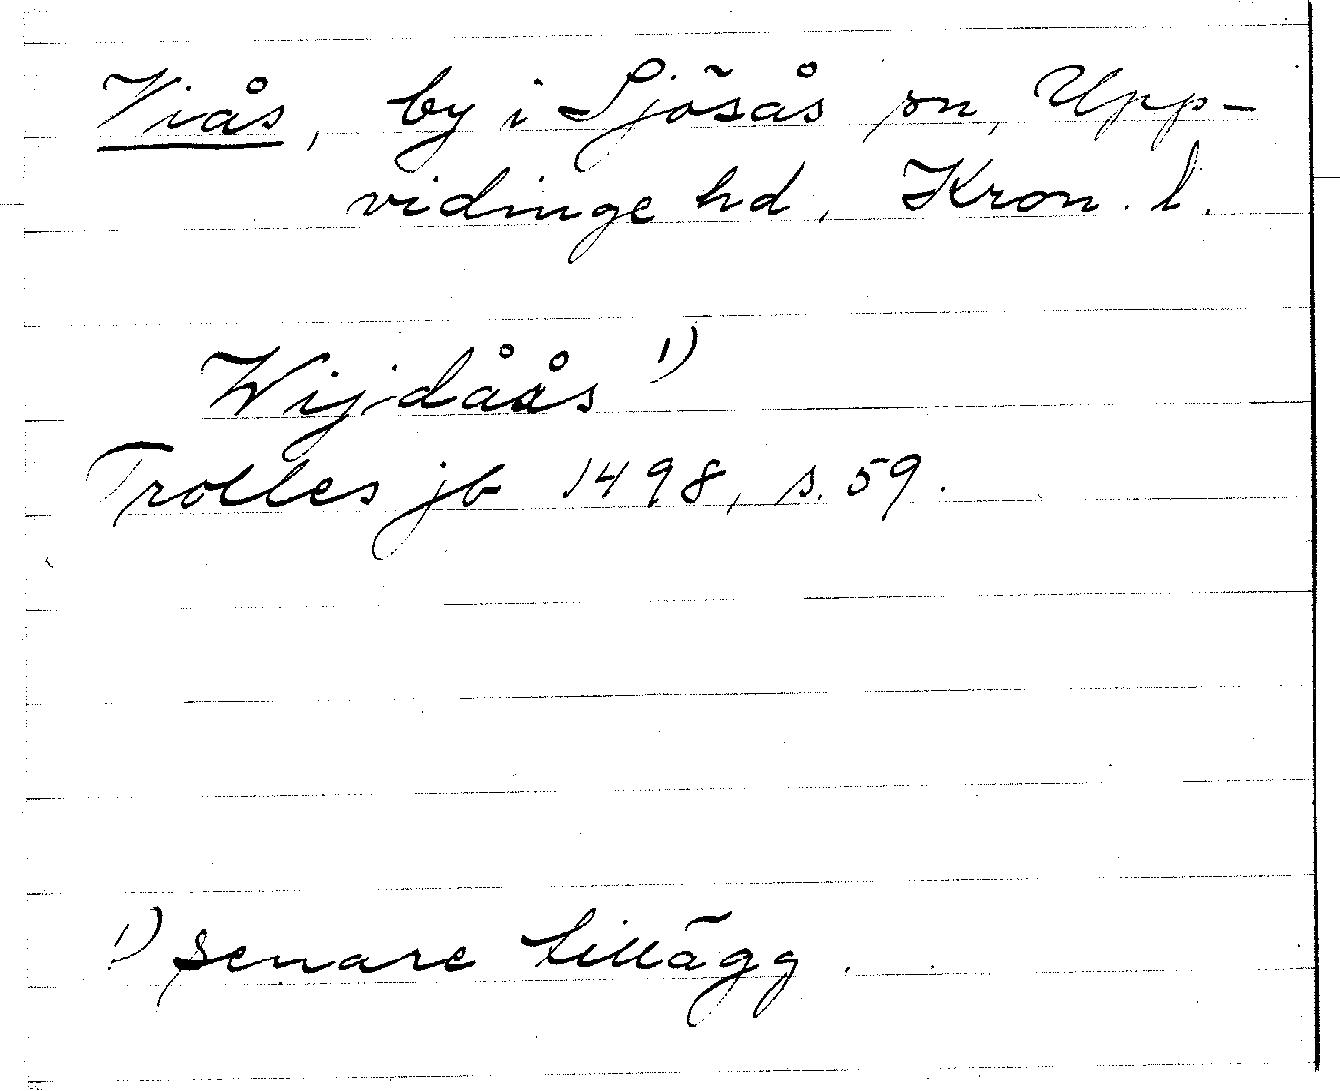 Viås, by i Sjösås sn, Upp-
vidinge hd, Kron. l.
Wijdåås 1)
Trolles jb 1498, s. 59.
1) senare tillägg.